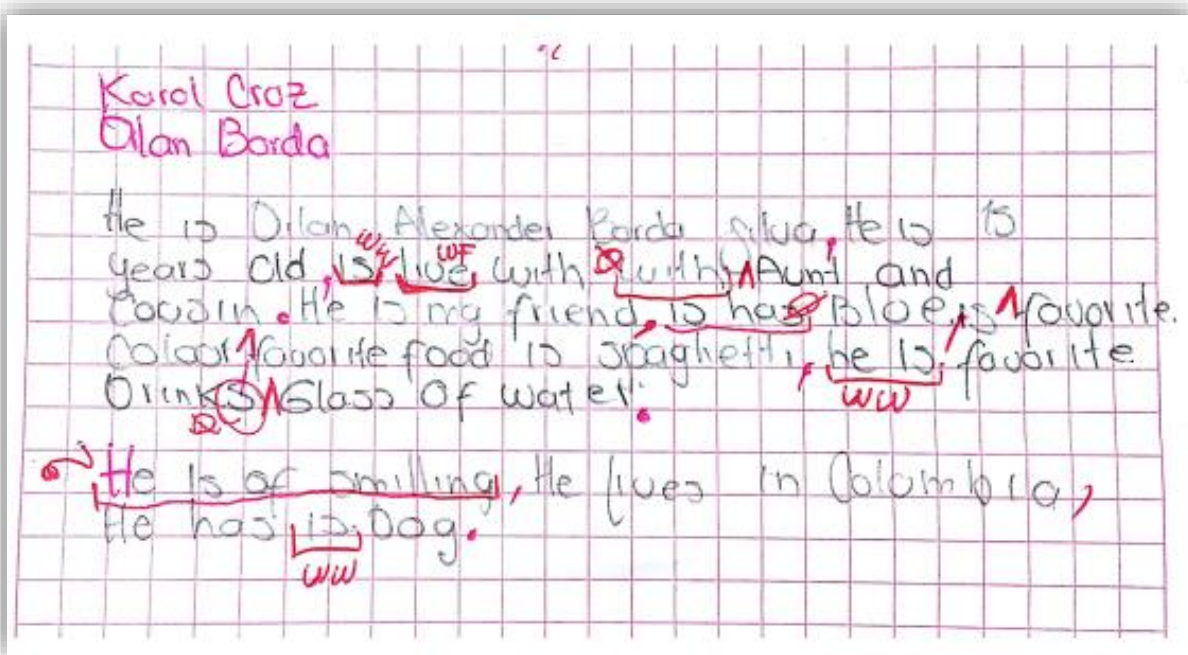 Karol Croz
Dilan Borda
He is Dilan Alexander Borda Silva, He is 15
ww WF
years old, is live with with Aunt and
Cousin. He is my friend, is has Bloe, is favorite.
Coloor favorite food is spaghetti, he is favorite
Drinks Glass Of water.
ww
He is of smilling, He lives in Colombia,
He has is Dog.
ww